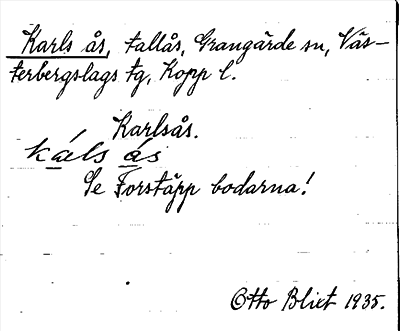 Karls ås, tallås, Grangärde sn, Väs-
terbergslags tg, Kopp l.
Karlsås.
káls ás
Se Forstäpp bodarna!
Otto Blixt 1935.